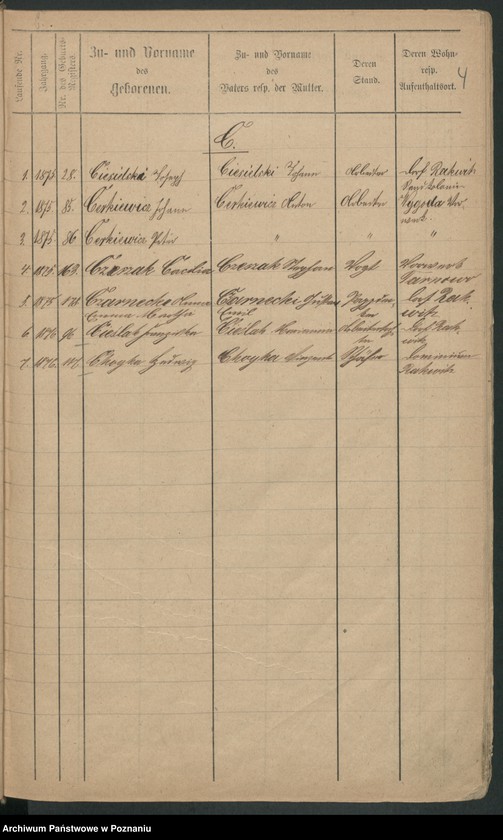 4
Laufende Nr.
Jahrgang.
Nr. des Geburts-Registers
Zu- und Vorname
des
Geborenen.
Zu- und Vorname
des
Vaters resp. der Mutter.
Deren
Stand.
Deren Wohn-
resp.
Aufenthaltsort.
C.
1. 1875 28. Ciesielski Joseph Ciesielski Johann Arbeiter Dorf Rakwitz
2. 1875 85. Cerkiewicz Johann Cerkiewicz Anton Arbeiter
Vor-
werk.
3. 1875 86 Cerkiewicz Peter " " "
4 1875 Czezak Czezak Stephan Vogt Vorwerk
5 1875 Czarnecke Czarnecki Dorf Rak-
Emma Martha Emil witz
6 1876 96 Cieslak Franziska Cieslak Marianna Dorf Rak-
witz
7. 1876. Choyka Hedwig Choyka Schäfer Dominium
Rakwitz
Archiwum Państwowe w Poznaniu